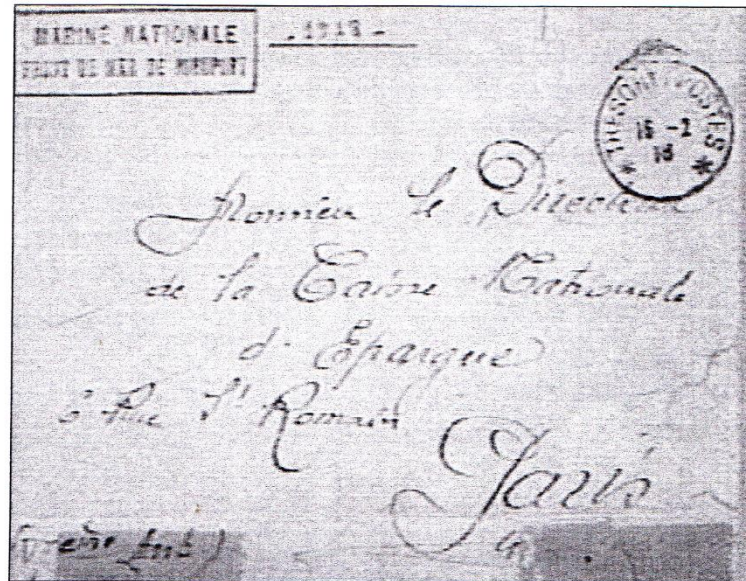 MARINE NATIONALE
FRONT DE MER DE
- 1918 -
TRESOR ET POSTES
16 -2
18
Monsieur le Directeur
de la Caisse Nationale
d'Epargne
6 Rue St Romain
Paris